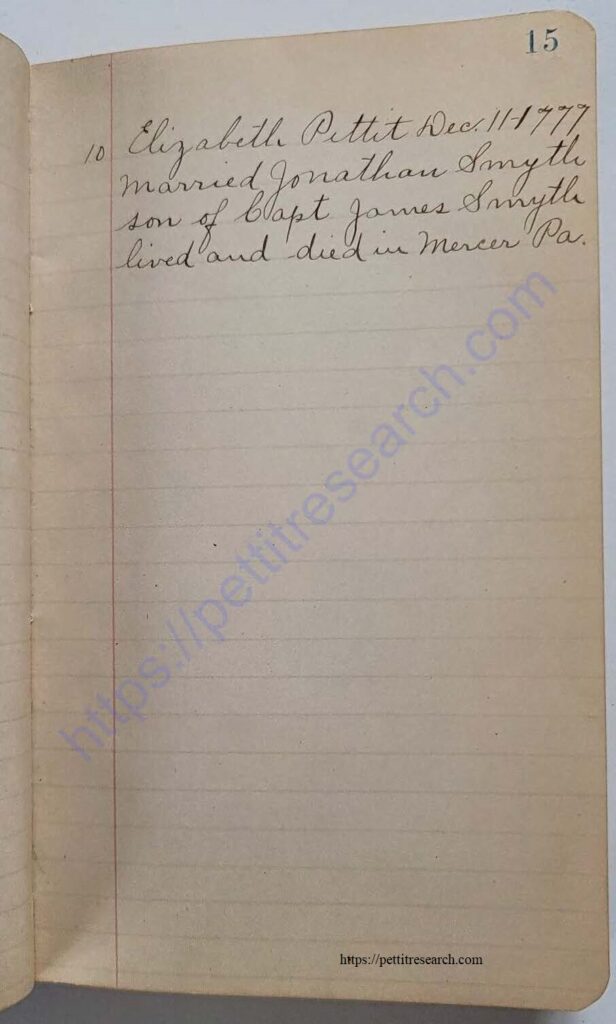 15
10 Elizabeth Pettit Dec. 11-1777
married Jonathan Smyth
son of Capt James Smyth
lived and died in Mercer Pa.
https://pettitresearch.com
https://pettitresearch.com